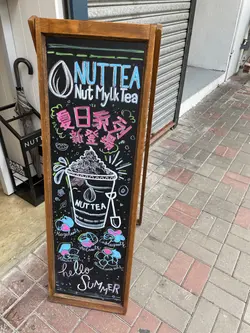 NUTTEA
Nut Mylk Tea
夏日系列
新登場
NUTTEA
hello
SUMMER
NUTT